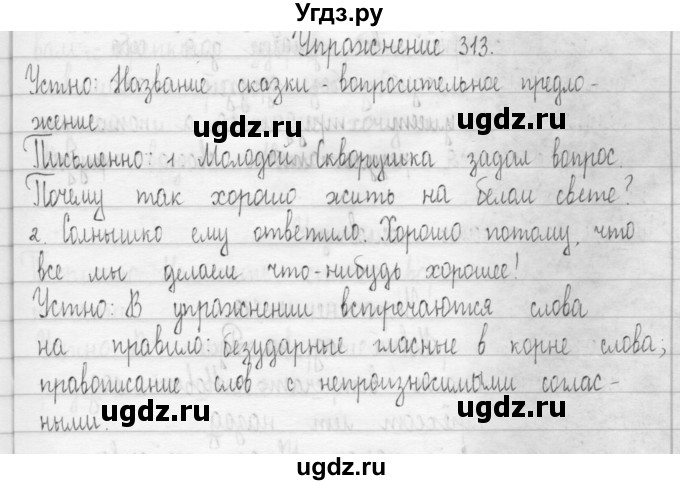 Угдз.ру
Упражнение 313.
Устно: Название сказки - вопросительное предло-
жение
ugdz.ru ugdz.ru
Письменно: 1 Молодой Скворушка задал вопрос.
Почему так хорошо жить на белом свете?
2. Солнышко ему ответило. Хорошо потому, что
все мы делаем что-нибудь хорошее!
Устно: В упражнении встречаются слова
на правило: безударные гласные в корне слова;
правописание слов с непроизносимыми соглас-
ными.
ugdz.ru ugdz.ru
ugdz.ru